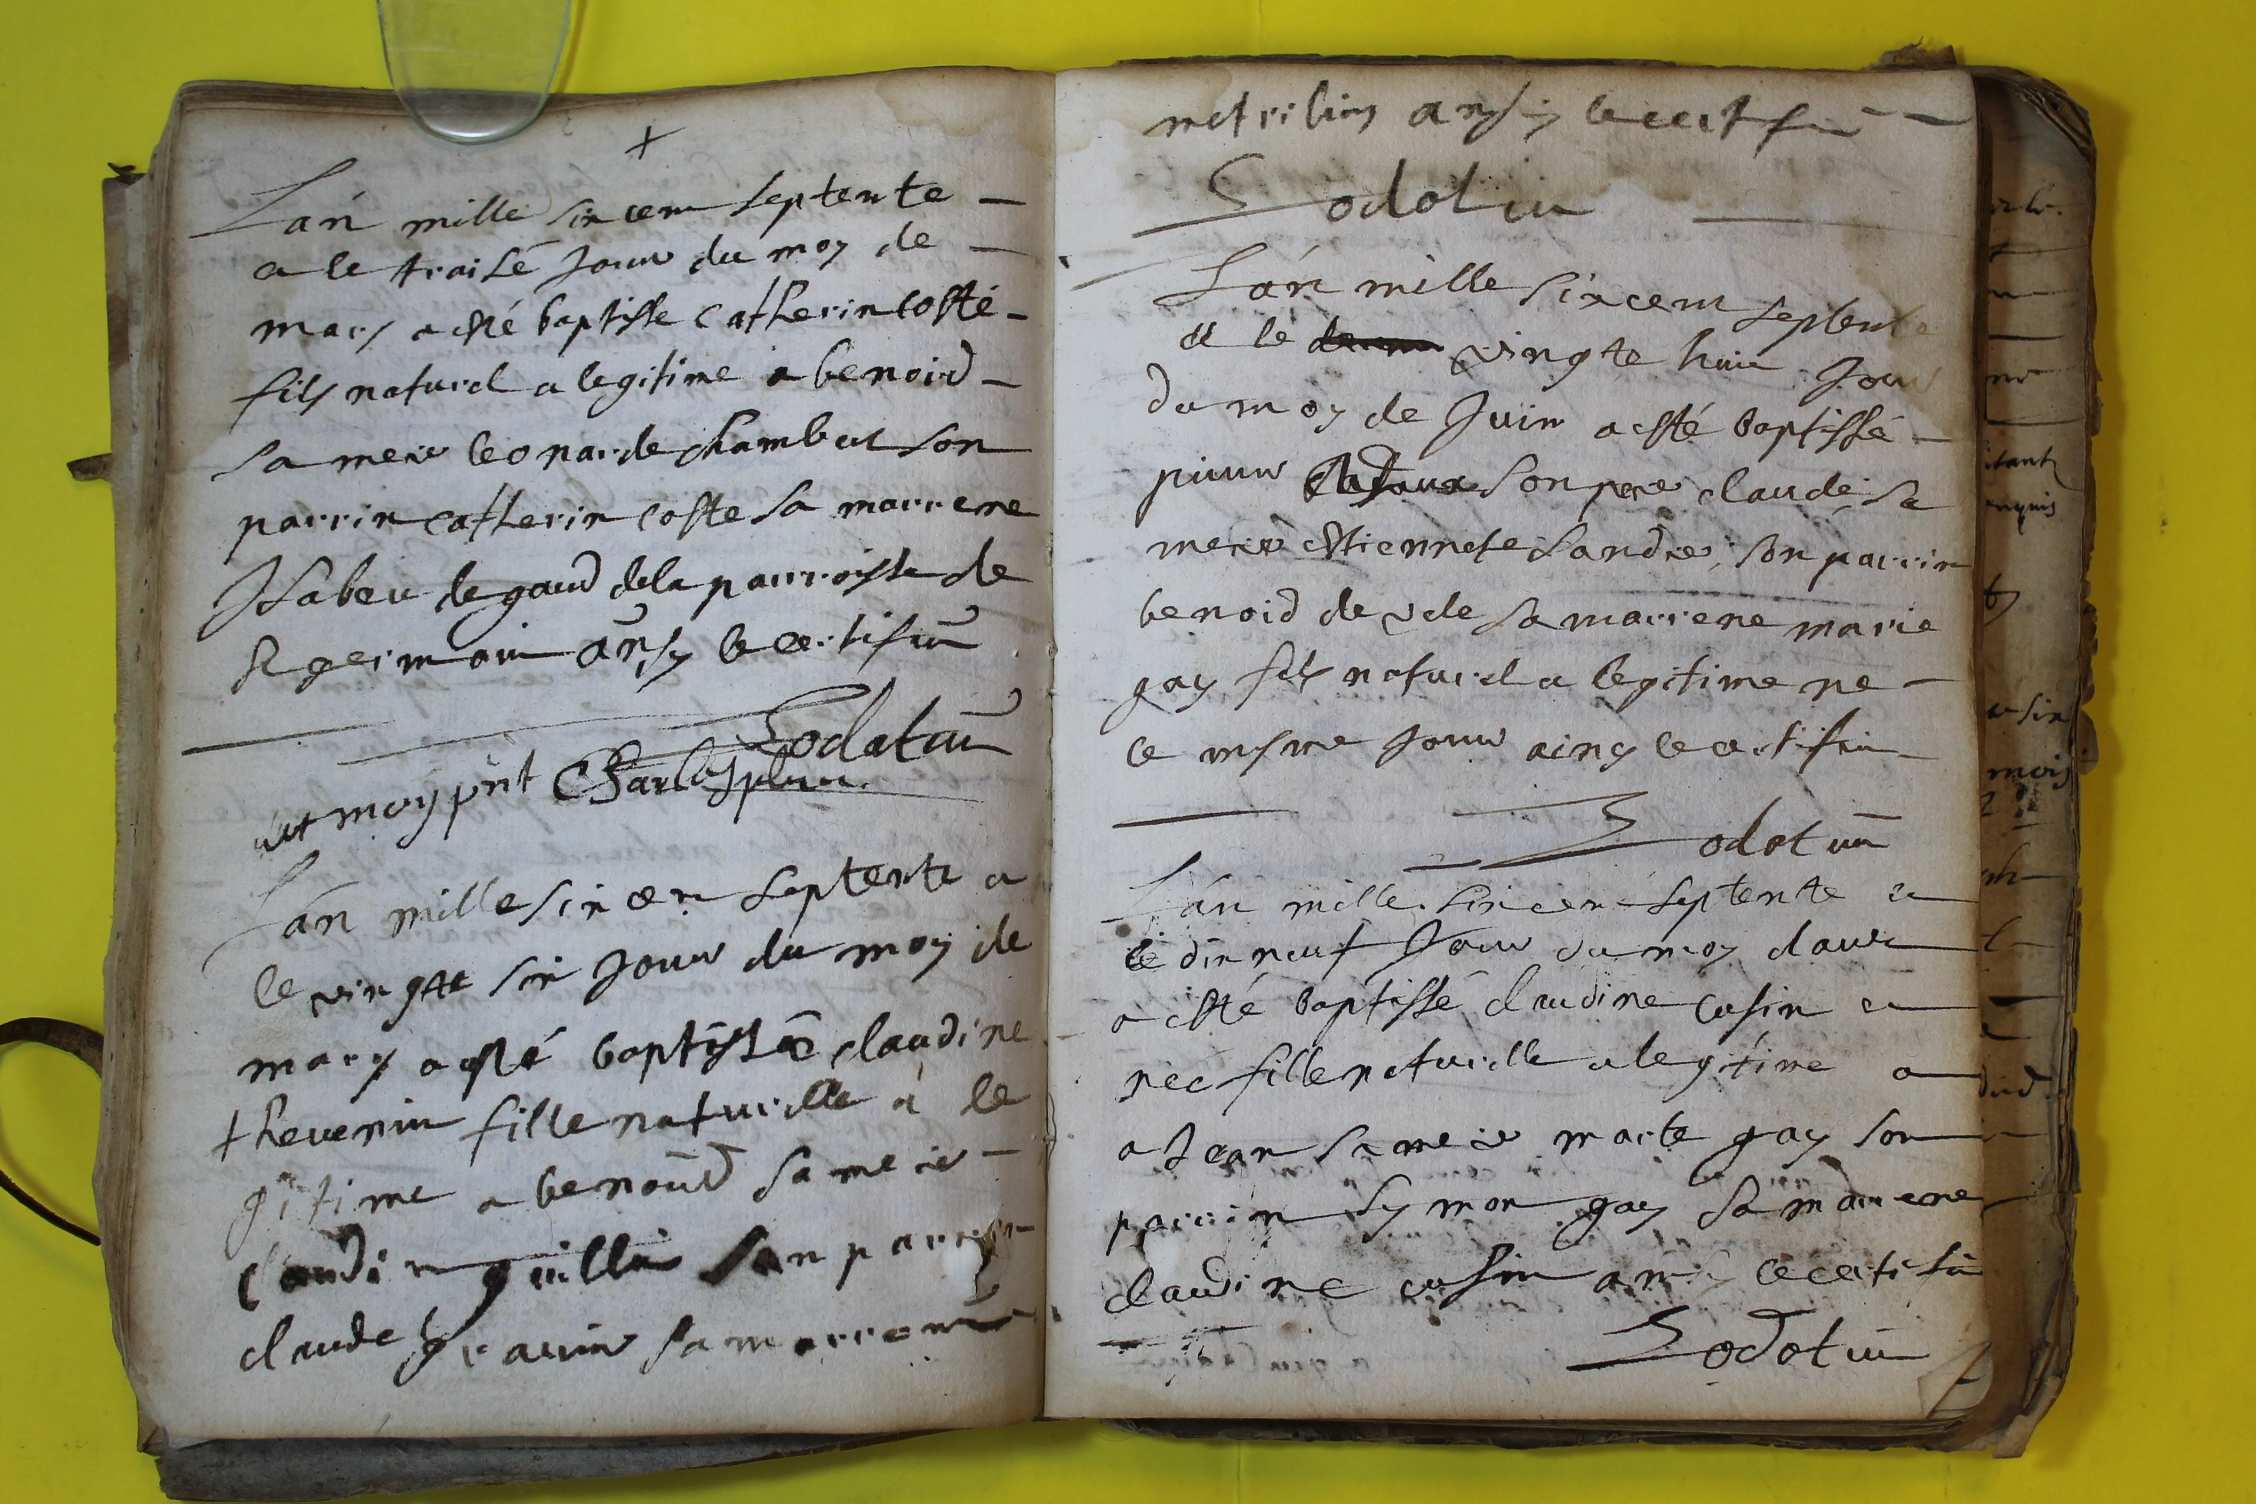 +
L'an mille sixcent septente
a le traisé Jour du moy de
mars a esté baptisse Catherin Coste
fils naturel a legitime a benoid
sa mere leonarde chambut son
parrin catherin coste sa marrene
Isabeu legaud de la parroisse de
St germain ansy le certifiu
Sodatum
moy pnt Charles
L'an mille sixcen septente a
le vingte six Jour du moy de
mars a esté baptissée claudine
thevenin fille naturelle a le
gitime a benoud sa mere
Claudin son parrin
claude sa marrene
ansy le certifiu
Sodotum
L'an mille sixcent septente
a le vingte huic Jour
du moy de Juin a esté baptissé
son pere claude sa
mere estiennete landre son parrin
benoid devde sa marrene marie
gay fils naturel a legitime ne
le mesme Jour ainsy le certifiu
Sodotum
L'an mille sixcen septente a
le dix neuf Jour du moy davr
a esté baptissé claudine Cusin a
nee fille naturelle a legitime a
a Jean sa mere marte gay son
parrin symon gay sa marrene
claudine cusin ansy le certifiu
Sodotum